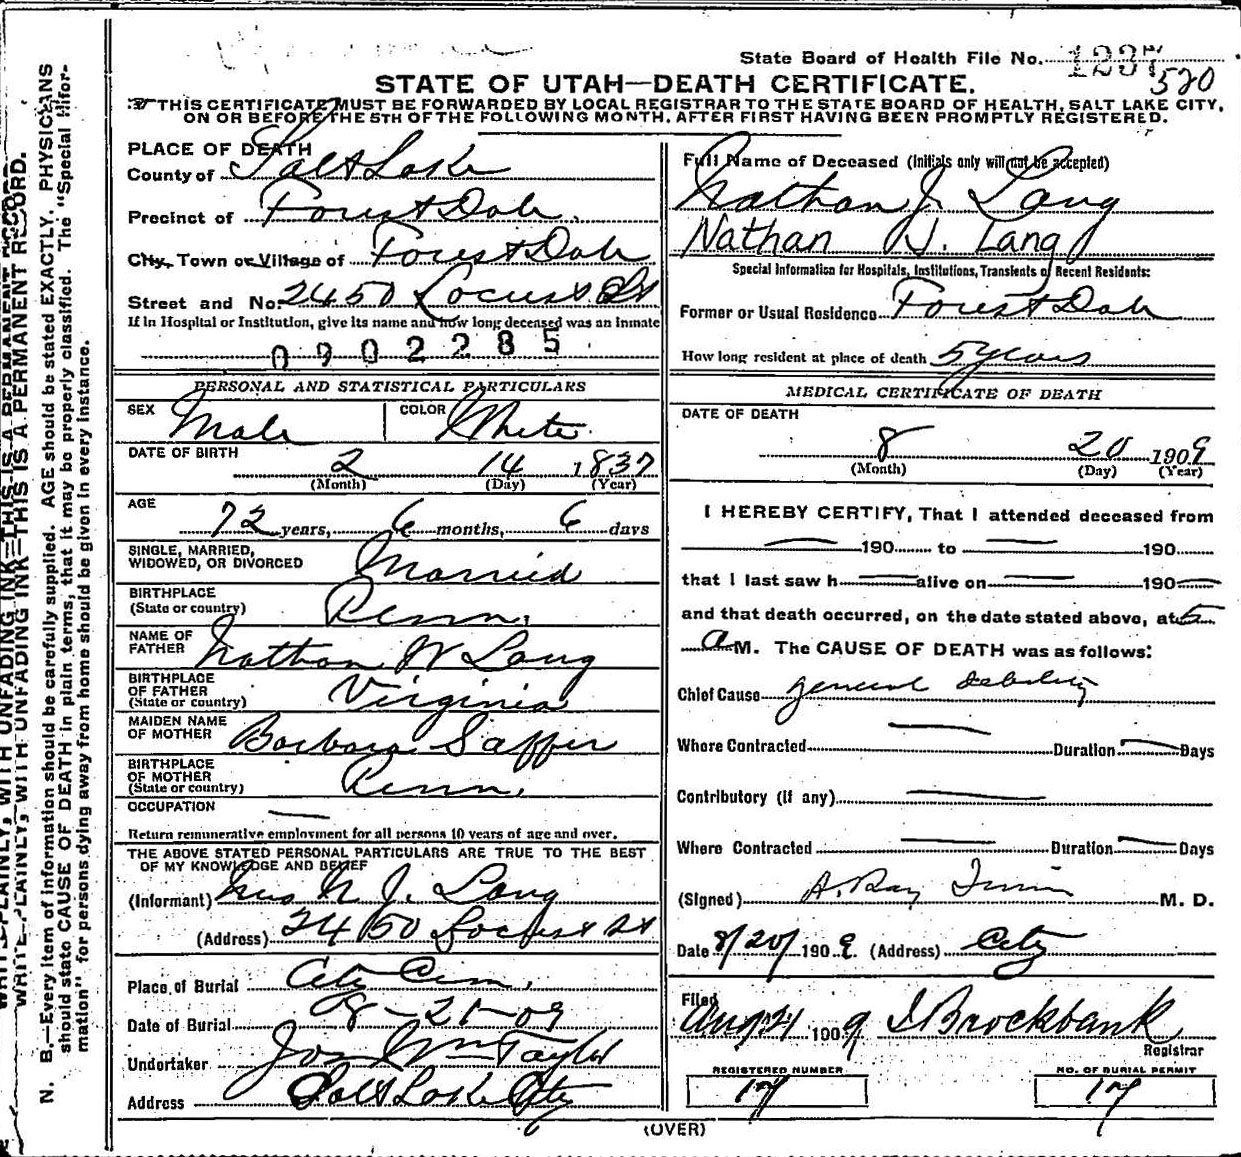 State Board of Health File No. 1237
520
STATE OF UTAH—DEATH CERTIFICATE.
THIS CERTIFICATE MUST BE FORWARDED BY LOCAL REGISTRAR TO THE STATE BOARD OF HEALTH, SALT LAKE CITY,
ON OR BEFORE THE 5TH OF THE FOLLOWING MONTH, AFTER FIRST HAVING BEEN PROMPTLY REGISTERED.
PLACE OF DEATH
County of Salt Lake
Precinct of Forest Dale.
City, Town or Village of Forest Dale
Street and No. 2450 Locust St
If in Hospital or Institution, give its name and how long deceased was an inmate
0902285
PERSONAL AND STATISTICAL PARTICULARS
SEX Male COLOR White
DATE OF BIRTH
2 14 1837
(Month) (Day) (Year)
AGE
72 years, 6 months, 6 days
SINGLE, MARRIED,
WIDOWED, OR DIVORCED Married
BIRTHPLACE
(State or country) Penn.
NAME OF
FATHER Nathan W Lang
BIRTHPLACE
OF FATHER
(State or country) Virginia
MAIDEN NAME
OF MOTHER Barbara Saffer
BIRTHPLACE
OF MOTHER
(State or country) Penn.
OCCUPATION —
Return remunerative employment for all persons 10 years of age and over.
THE ABOVE STATED PERSONAL PARTICULARS ARE TRUE TO THE BEST
OF MY KNOWLEDGE AND BELIEF
(Informant) Mrs N. J. Lang
(Address) 2450 Locust St
Place of Burial City Cem.
Date of Burial 8-21-09
Undertaker Jos Wm Taylor
Address Salt Lake City
Full Name of Deceased (Initials only will not be accepted)
Nathan J. Lang
Nathan J. Lang
Special Information for Hospitals, Institutions, Transients or Recent Residents:
Former or Usual Residence Forest Dale
How long resident at place of death 5 years
MEDICAL CERTIFICATE OF DEATH
DATE OF DEATH
8 20 1909
(Month) (Day) (Year)
I HEREBY CERTIFY, That I attended deceased from
— 190 to — 190
that I last saw h — alive on — 190 —
and that death occurred, on the date stated above, at 5
a M. The CAUSE OF DEATH was as follows:
Chief Cause general debility
Where Contracted — Duration — Days
Contributory (if any) —
Where Contracted — Duration — Days
(Signed) A. Ray Irvine M. D.
Date 8/20/ 1909. (Address) City
Filed
Aug 21 1909 I Brockbank
Registrar
REGISTERED NUMBER
17
NO. OF BURIAL PERMIT
17
(OVER)
WRITE PLAINLY, WITH UNFADING INK—THIS IS A PERMANENT RECORD.
WRITE PLAINLY, WITH UNFADING INK—THIS IS A PERMANENT RECORD.
N. B.—Every item of information should be carefully supplied. AGE should be stated EXACTLY. PHYSICIANS
should state CAUSE OF DEATH in plain terms, that it may be properly classified. The "Special Infor-
mation" for persons dying away from home should be given in every instance.